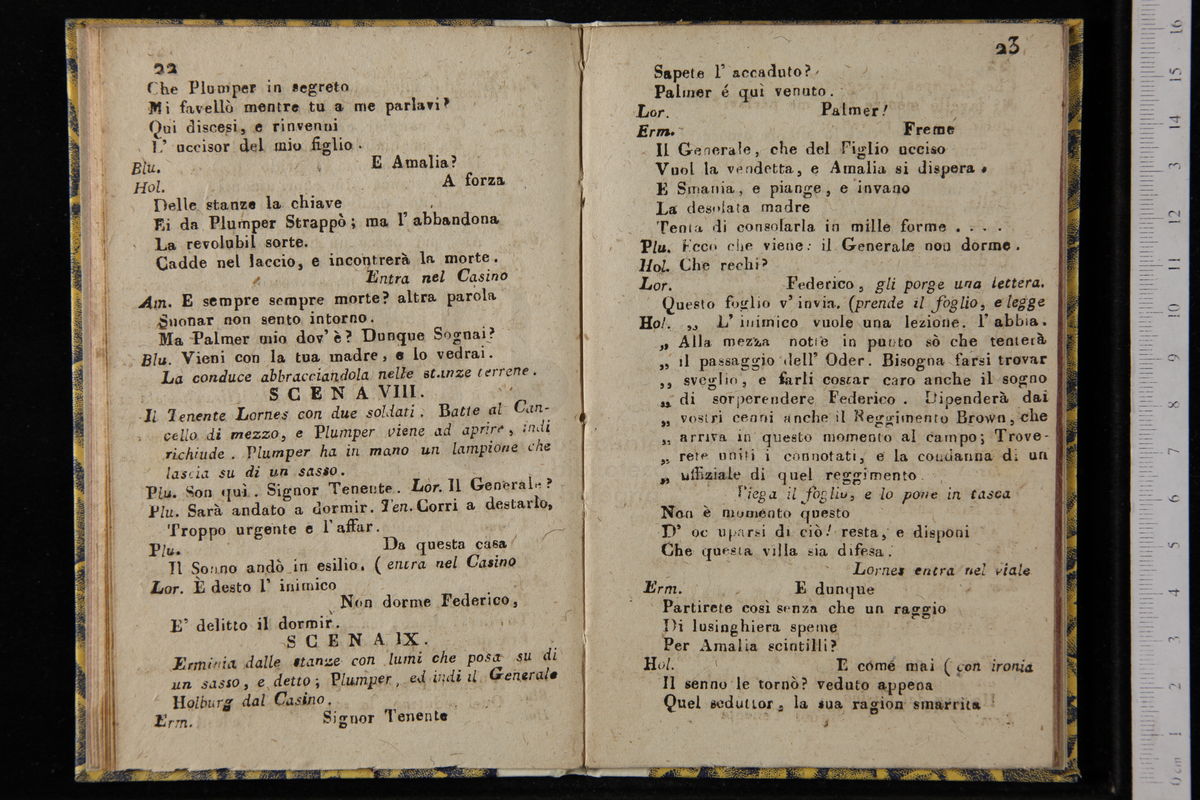 22
Che Plumper in segreto
Mi favellò mentre tu a me parlavi?
Qui discesi, e rinvenni
L' uccisor del mio figlio.
Blu. E Amalia?
Hol. A forza
Delle stanze la chiave
Ei da Plumper Strappò; ma l' abbandona
La revolubil sorte.
Cadde nel laccio, e incontrerà la morte.
Entra nel Casino
Am. E sempre sempre morte? altra parola
Suonar non sento intorno.
Ma Palmer mio dov' è? Dunque Sognai?
Blu. Vieni con la tua madre, e lo vedrai.
La conduce abbracciandola nelle stanze terrene.
SCENA VIII.
Il Tenente Lornes con due soldati. Batte al Can-
cello di mezzo, e Plumper viene ad aprire, indi
richiude. Plumper ha in mano un lampione che
lascia su di un sasso.
Plu. Son quì. Signor Tenente. Lor. Il Generale?
Plu. Sarà andato a dormir. Ten. Corri a destarlo,
Troppo urgente e l' affar.
Plu. Da questa casa
Il Sonno andò in esilio. (entra nel Casino
Lor. È desto l' inimico
Non dorme Federico,
E' delitto il dormir.
SCENA IX.
Erminia dalle stanze con lumi che posa su di
un sasso, e detto; Plumper, ed indi il Generale
Holburg dal Casino.
Erm. Signor Tenente
23
Sapete l' accaduto?
Palmer é quì venuto.
Lor. Palmer!
Erm. Freme
Il Generale, che del Figlio ucciso
Vuol la vendetta, e Amalia si dispera.
E Smania, e piange, e invano
La desolata madre
Tenta di consolarla in mille forme . . . .
Plu. Ecco che viene: il Generale non dorme.
Hol. Che rechi?
Lor. Federico, gli porge una lettera.
Questo foglio v' invia. (prende il foglio, e legge
Hol. „ L' inimico vuole una lezione. l' abbia.
„ Alla mezza notte in punto sò che tenterà
„ il passaggio dell' Oder. Bisogna farsi trovar
„ sveglio, e farli costar caro anche il sogno
„ di sorperendere Federico. Dipenderà dai
„ vostri cenni anche il Reggimento Brown, che
„ arriva in questo momento al campo; Trove-
„ rete uniti i connotati, e la condanna di un
„ uffiziale di quel reggimento.
Piega il foglio, e lo pone in tasca
Non è momento questo
D' oc uparsi di ciò! resta, e disponi
Che questa villa sia difesa.
Lornes entra nel viale
Erm. E dunque
Partirete così senza che un raggio
Di lusinghiera speme
Per Amalia scintilli?
Hol. E come mai (con ironia
Il senno le tornò? veduto appena
Quel seduttor, la sua ragion smarrita